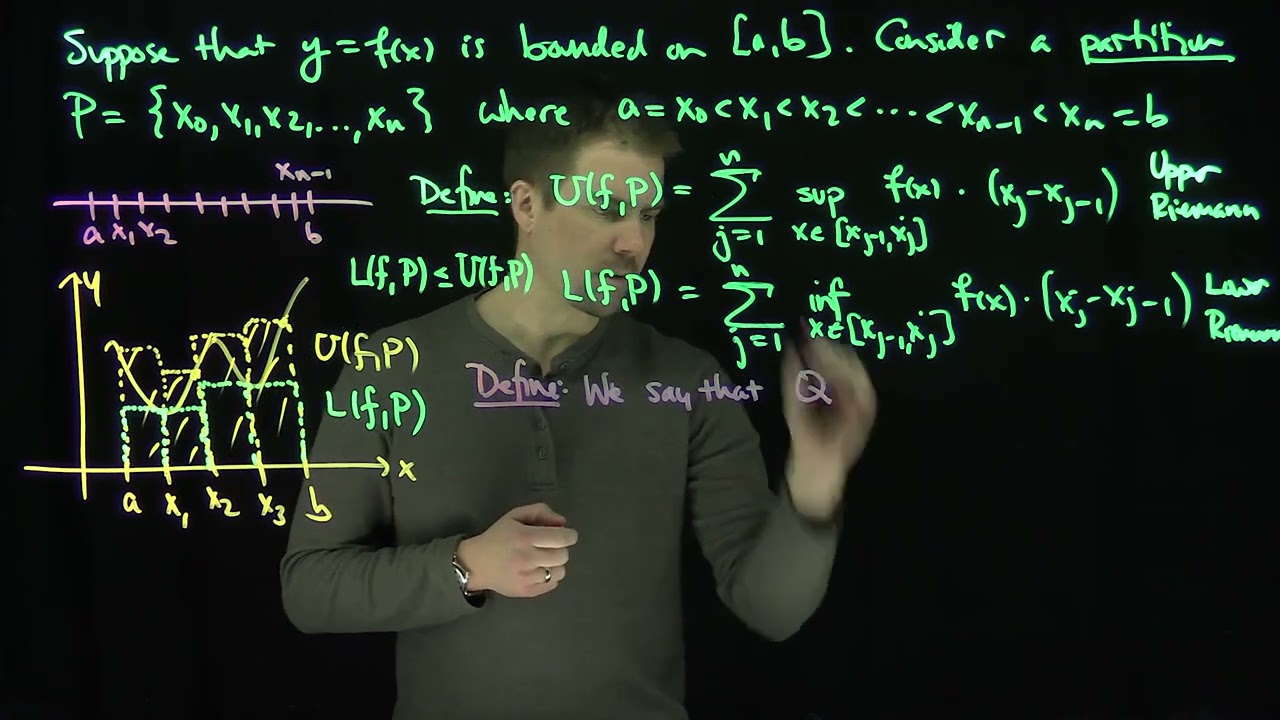 Suppose that y = f(x) is bounded on [a,b]. Consider a partition
P = {x₀, x₁, x₂, ..., xₙ} where a = x₀ < x₁ < x₂ < ... < xₙ₋₁ < xₙ = b
xₙ₋₁
a x₁ x₂ b
Define: U(f,P) = ∑ⱼ₌₁ⁿ sup x∈[xⱼ₋₁,xⱼ] f(x) · (xⱼ - xⱼ₋₁) Upper Riemann
L(f,P) ≤ U(f,P)
L(f,P) = ∑ⱼ₌₁ⁿ inf x∈[xⱼ₋₁,xⱼ] f(x) · (xⱼ - xⱼ₋₁) Lower
y
U(f,P)
L(f,P)
x
a x₁ x₂ x₃ b
Define: We say that Q